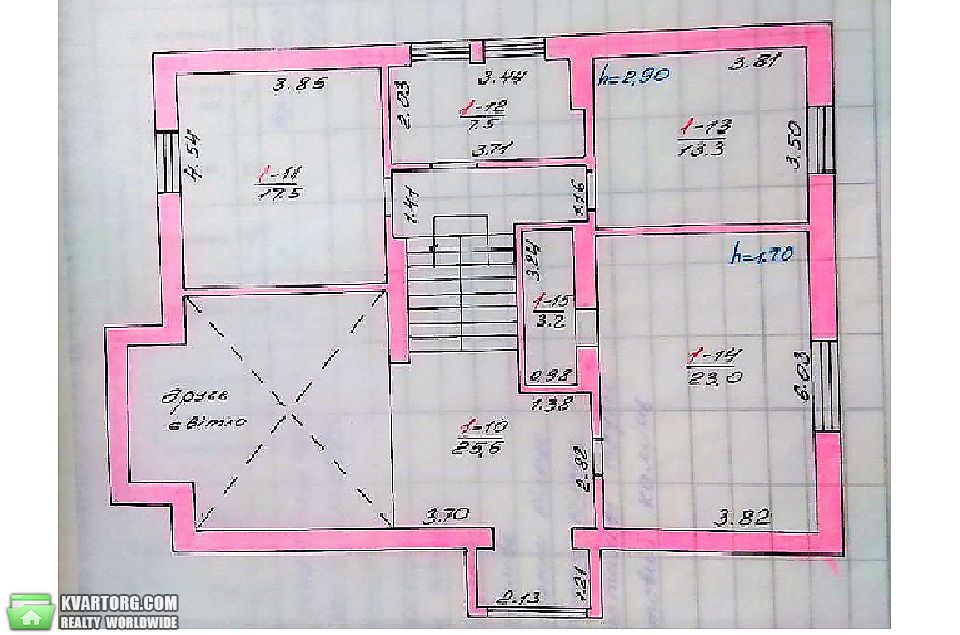 3.85
3.44
h=2,90
3.81
2.03
1-12
7.5
1-13
13.3
3.50
4.54
3.71
1-11
17.5
1.41
1.16
3.24
h=1.70
1-15
3.2
1-14
23.0
6.03
0.98
друге
світло
1.38
1-10
25,6
2.92
3.70
3.82
2.13
1.21
KVARTORG.COM
REALTY WORLDWIDE